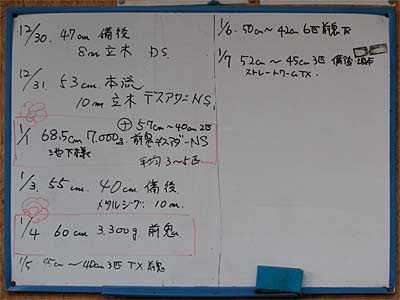 12/30. 47cm 備後
8m 立木 DS.
12/31. 53cm. 本流
10m 立木 デスアダーNS.
⊕57cm〜40cm 2匹
1/1 68.5cm 7.000g. 前鬼デスアダーNS
池下様 平均3〜5匹
1/3. 55cm. 40cm 備後.
メタルジグ. 10m.
1/4 60cm 3.300g 前鬼.
1/5 45cm〜40cm 3匹 TX 前鬼
1/6. 50cm〜42cm 6匹前鬼 TX
1/7 52cm〜45cm 3匹 備後
ストレートワームTX.